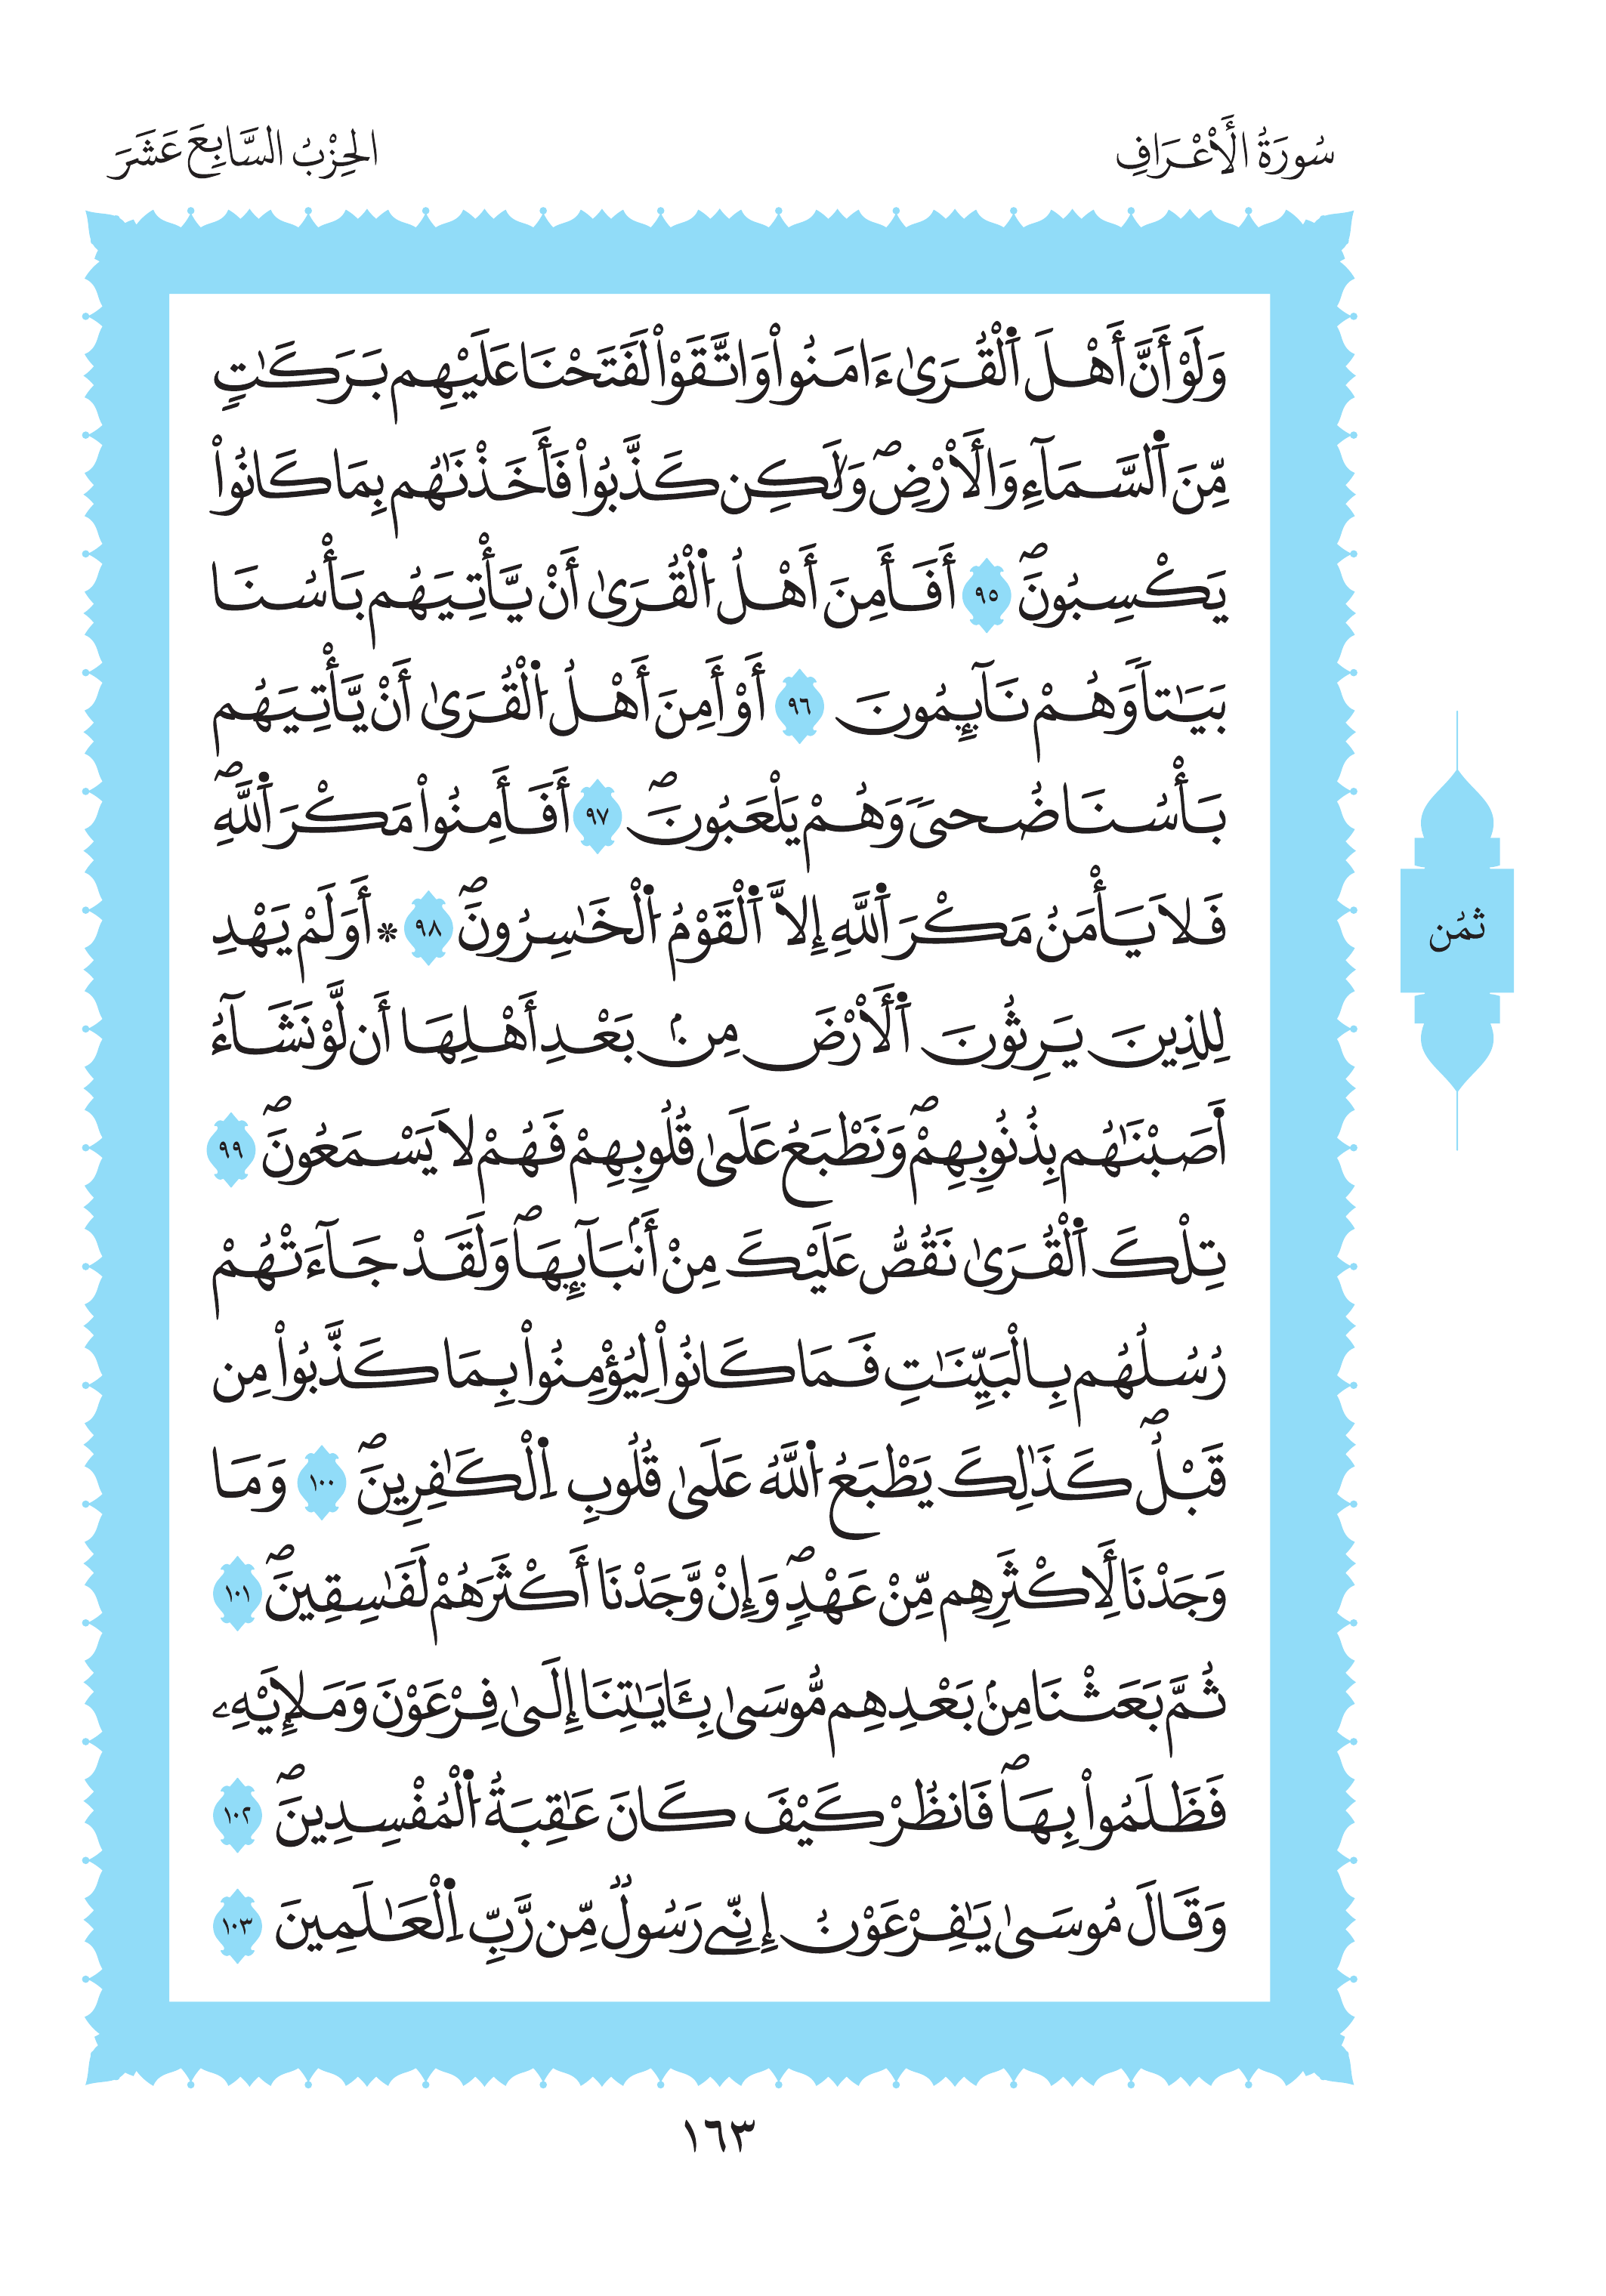 سُورَةُ الْأَعْرَافِ
الحِزْبُ السَّابِعَ عَشَرَ
وَلَوْ أَنَّ أَهْلَ اَ۬لْقُرَىٰ ءَامَنُواْ وَاتَّقَوْاْ لَفَتَحْنَا عَلَيْهِم بَرَكَٰتٖ
مِّنَ اَ۬لسَّمَآءِ وَالْأَرْضِۖ وَلَٰكِن كَذَّبُواْ فَأَخَذْنَٰهُم بِمَا كَانُواْ
يَكْسِبُونَۖ ٩٥ أَفَأَمِنَ أَهْلُ اُ۬لْقُرَىٰ أَنْ يَّأْتِيَهُم بَأْسُنَا
بَيَٰتاٗ وَهُمْ نَآئِمُونَ ٩٦ أَوْ أَمِنَ أَهْلُ اُ۬لْقُرَىٰ أَنْ يَّأْتِيَهُم
بَأْسُنَا ضُحىٗ وَهُمْ يَلْعَبُونَۖ ٩٧ أَفَأَمِنُواْ مَكْرَ اَ۬للَّهِۖ
فَلَا يَأْمَنُ مَكْرَ اَ۬للَّهِ إِلَّا اَ۬لْقَوْمُ اُ۬لْخَٰسِرُونَۖ ٩٨ * أَوَلَمْ يَهْدِ
لِلذِينَ يَرِثُونَ اَ۬لْأَرْضَ مِنۢ بَعْدِ أَهْلِهَا أَن لَّوْ نَشَآءُ
اَ۬صَبْنَٰهُم بِذُنُوبِهِمْۖ وَنَطْبَعُ عَلَىٰ قُلُوبِهِمْ فَهُمْ لَا يَسْمَعُونَۖ ٩٩
تِلْكَ اَ۬لْقُرَىٰ نَقُصُّ عَلَيْكَ مِنْ أَنۢبَآئِهَاۖ وَلَقَدْ جَآءَتْهُمْ
رُسُلُهُم بِالْبَيِّنَٰتِ فَمَا كَانُواْ لِيُؤْمِنُواْ بِمَا كَذَّبُواْ مِن
قَبْلُۖ كَذَٰلِكَ يَطْبَعُ اُ۬للَّهُ عَلَىٰ قُلُوبِ اِ۬لْكَٰفِرِينَۖ ١٠٠ وَمَا
وَجَدْنَا لِأَكْثَرِهِم مِّنْ عَهْدٖۖ وَإِنْ وَّجَدْنَا أَكْثَرَهُمْ لَفَٰسِقِينَۖ ١٠١
ثُمَّ بَعَثْنَا مِنۢ بَعْدِهِم مُّوسَىٰ بِـَٔايَٰتِنَا إِلَىٰ فِرْعَوْنَ وَمَلَإِيْهِۦ
فَظَلَمُواْ بِهَاۖ فَانظُرْ كَيْفَ كَانَ عَٰقِبَةُ اُ۬لْمُفْسِدِينَۖ ١٠٢
وَقَالَ مُوسَىٰ يَٰفِرْعَوْنُ إِنِّے رَسُولٞ مِّن رَّبِّ اِ۬لْعَٰلَمِينَ ١٠٣
ثُمُن
١٦٣